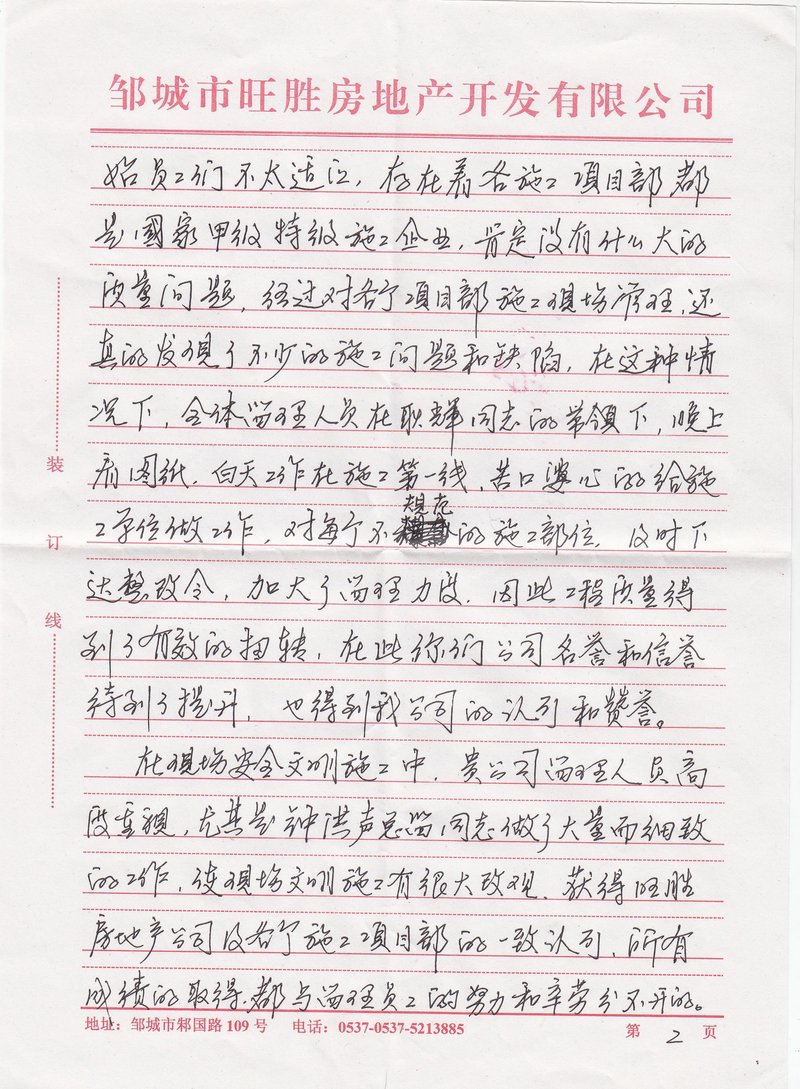 邹城市旺胜房地产开发有限公司
始员工们不太适应，存在着各施工项目部都
是國家甲级特级施工企业，肯定没有什么大的
质量问题，经过对各个项目部施工现场管理，还
真的发现了不少的施工问题和缺陷，在这种情
况下，全体监理人员在耿辉同志的带领下，晚上
看图纸，白天工作在施工第一线，苦口婆心的给施
规范
工单位做工作，对每个不的施工部位，及时下
达整改令，加大了监理力度，因此工程质量得
到了有效的扭转，在此你们公司名誉和信誉
得到了提升，也得到我公司的认可和赞誉。
在现场安全文明施工中，贵公司监理人员高
度重视，尤其是钟洪声总监同志做了大量而细致
的工作，使现场文明施工有很大改观，获得旺胜
房地产公司及各个施工项目部的一致认可，所有
成绩的取得，都与监理员工的努力和辛劳分不开的。
装
订
线
地址：邹城市邾国路109号 电话：0537-0537-5213885
第 2 页